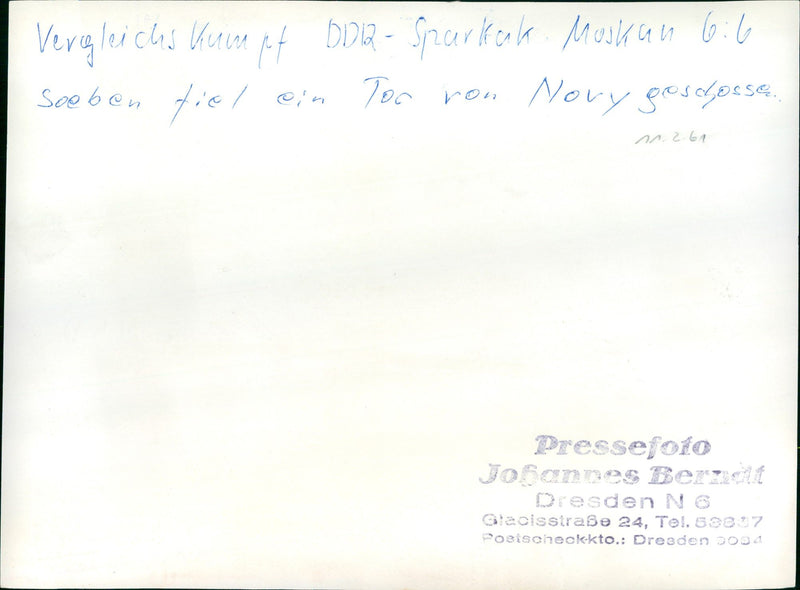 Vergleichskampf DDR - Spartak Moskau 6:6
soeben fiel ein Tor von Novy geschossen.
11.2.61
Pressefoto
Johannes Berndt
Dresden N 6
Glacisstraße 24, Tel.
Postscheckkto.: Dresden